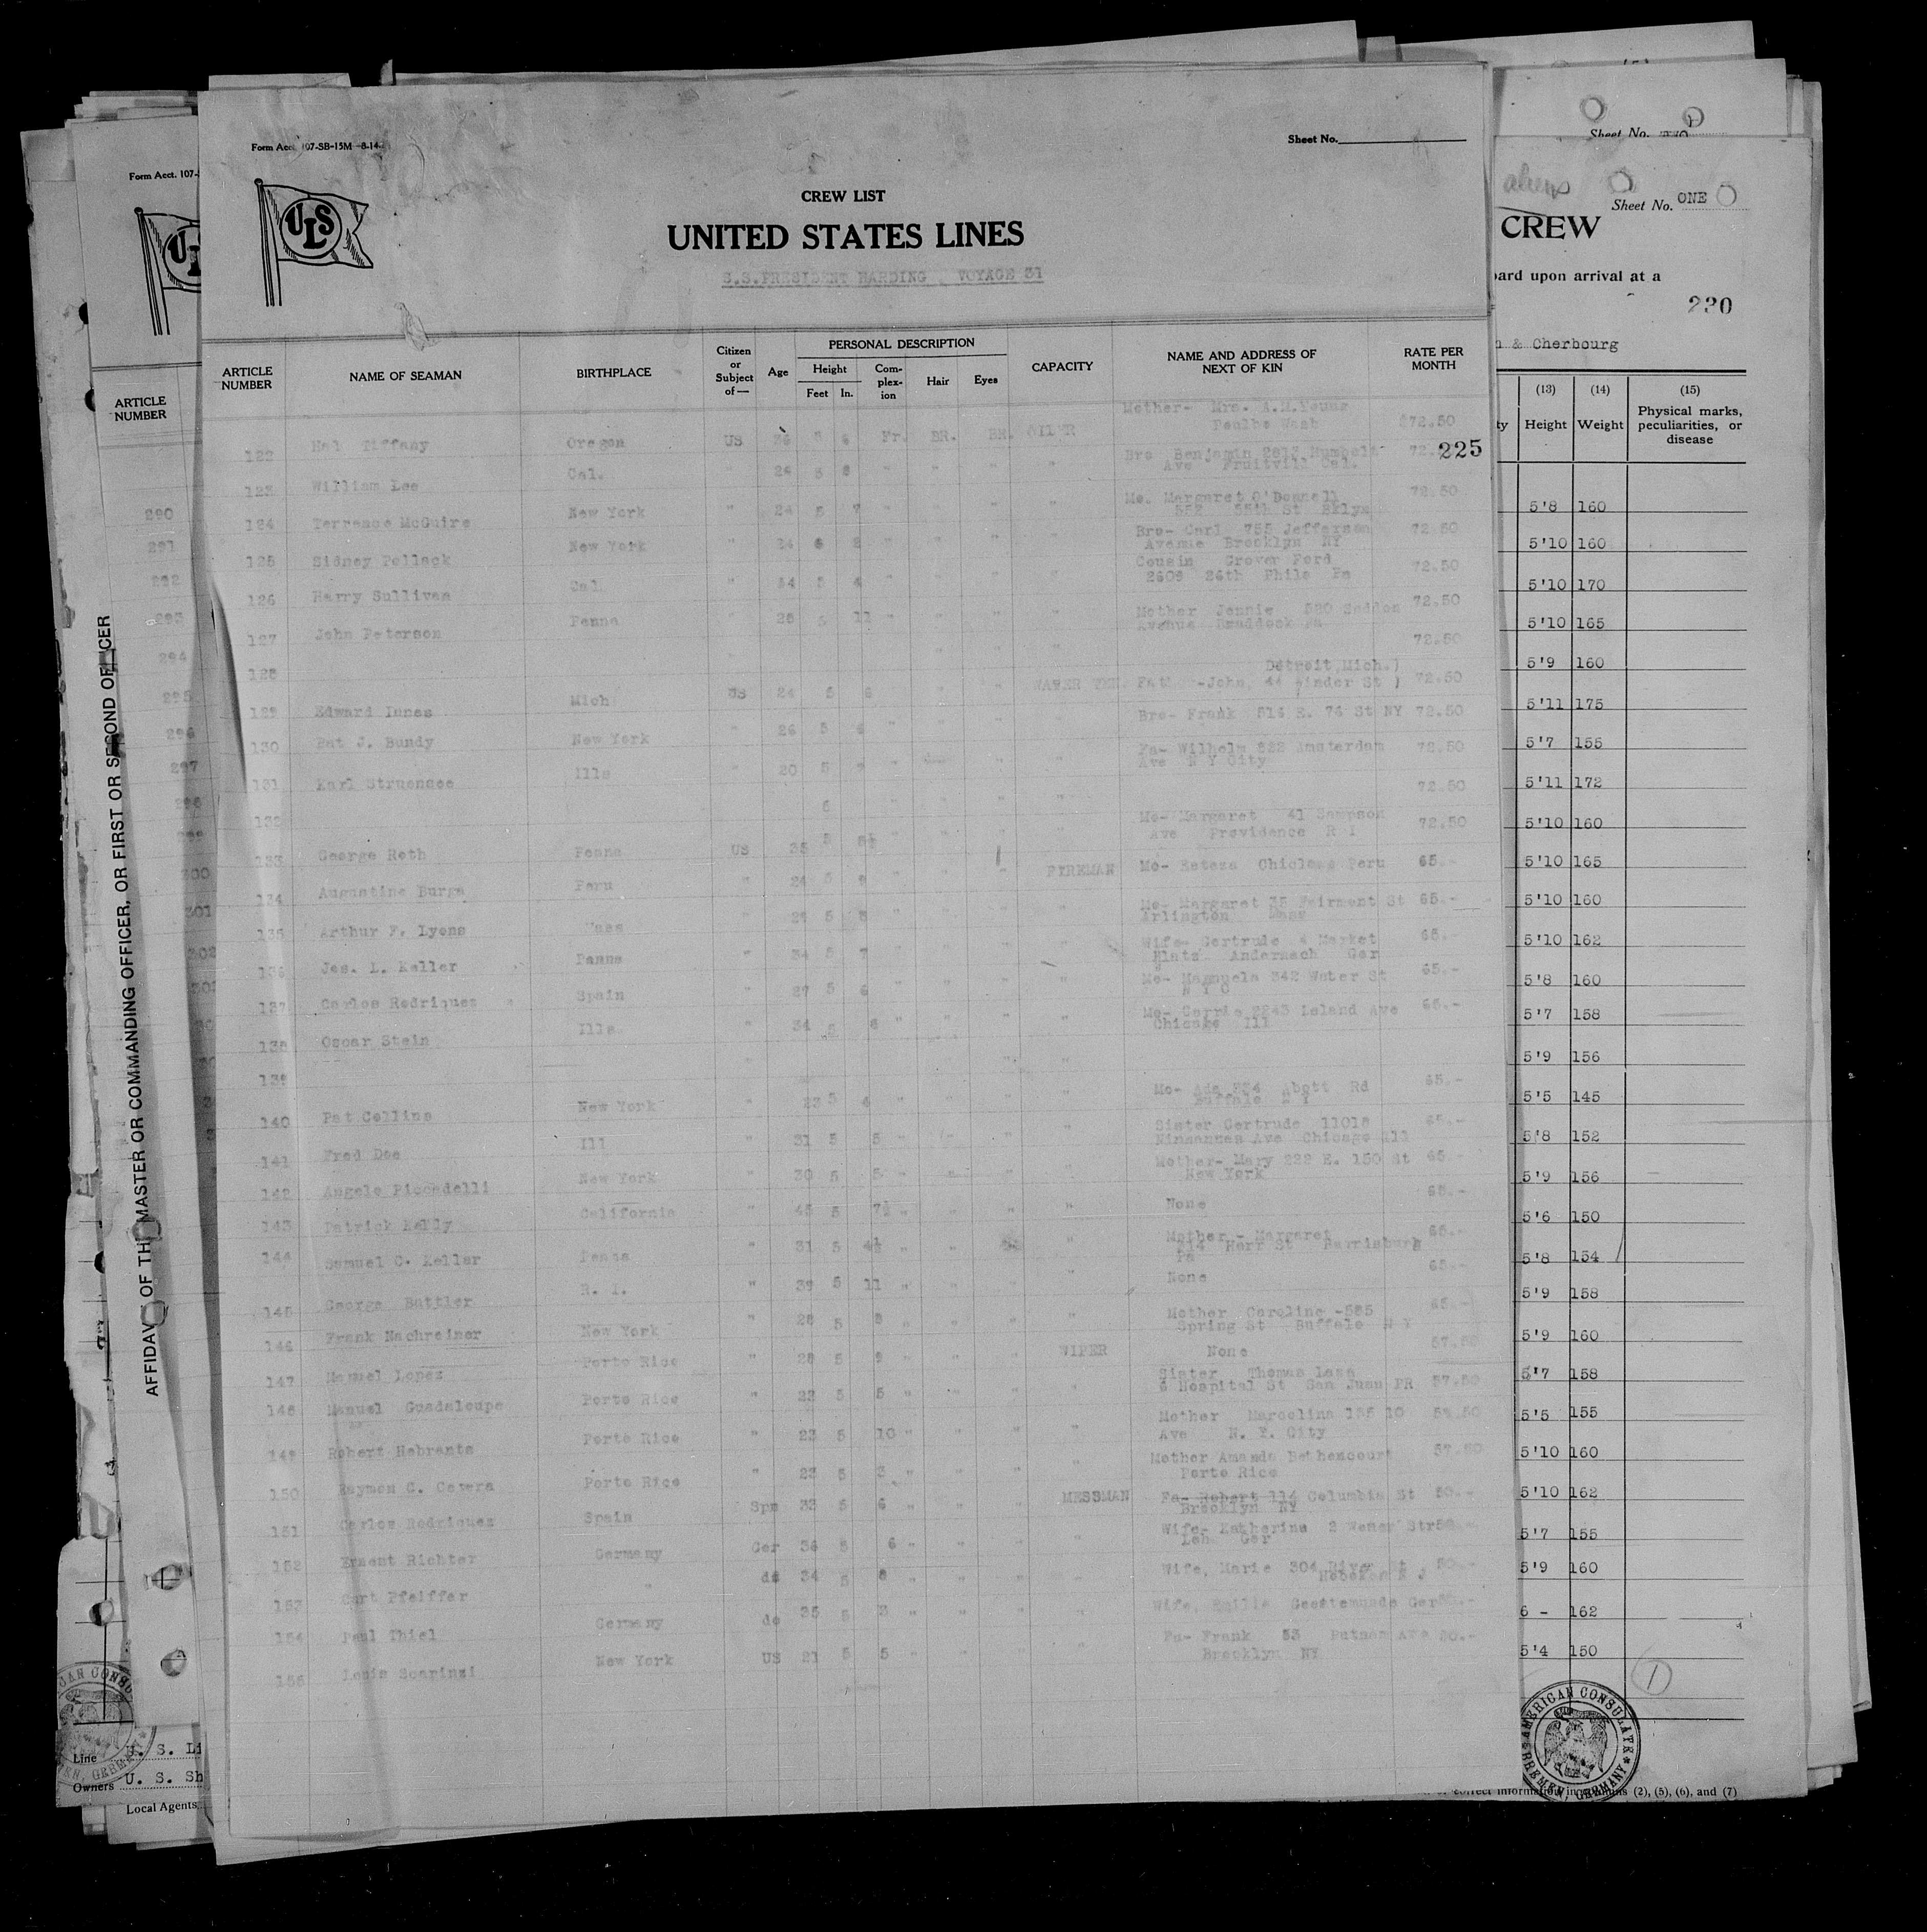 Form Acct. 107-SB-15M-8-14
Sheet No.
ULS
CREW LIST
UNITED STATES LINES
S.S.PRESIDENT HARDING VOYAGE 31
ARTICLE NUMBER NAME OF SEAMAN BIRTHPLACE Citizen or Subject of— Age PERSONAL DESCRIPTION Height Feet In. Complexion Hair Eyes CAPACITY NAME AND ADDRESS OF NEXT OF KIN RATE PER MONTH
Mother- Mrs. A.M.Young
122 Hal Tiffany Oregon US 36 5 6 Fr. BR. BR. Wash $72.50
225
123 William Lee Cal. " 24 5 8 " " " " Bro Benjamin 2813
Ave Fruitvill Cal.
124 Terrence McGuire New York " 24 5 7 " " " " Mo. Margaret O'Donnell 72.50
552 55th St Bklyn
125 Sidney Pollack New York " 24 6 2 " " " " Bro- Carl 755 Jefferson 72.50
Avenue Brooklyn NY
126 Harry Sullivan Cal. " 34 5 4 " " " " Cousin Grover Ford 72.50
2609 26th Phila Pa
127 John Peterson Penna " 28 5 11 " " " " Mother Jennie 520 72.50
Avenue Braddock Pa
128 " " 72.50
Detroit,Mich.)
129 Edward Innes Mich US 24 5 6 " " WATER TEN. Father-John, 44 Winder St ) 72.50
130 Pat J. Bundy New York " 26 5 6 " " Bro- Frank 514 E. 76 St NY 72.50
131 Karl Struensee Ills " 20 5 " " " " Fa- Wilhelm 822 Amsterdam 72.50
Ave N Y City
132 6 " " " " 72.50
133 George Roth Penna US 35 5 8½ " " " " Mo- Margaret 41 Sampson 72.50
Ave Providence R I
134 Augustine Burga Peru " 26 5 9 " " FIREMAN Mo- Esteza Chiclayo Peru 65.-
135 Arthur F. Lyons Mass " 5 8 " " " " Mo- Margaret 35 Fairmont St 65.-
Arlington Mass
136 Jos. L. Keller Penna " 34 5 7 " " " " Wife- Gertrude 4 Market 65.-
Platz Andernach Ger
137 Carlos Rodriquez Spain " 27 5 6 " " " " Mo- Mannuela 342 Water St 65.-
N Y C
138 Oscar Stein Ills " 34 5 8 " " " " Mo- Carrie 2243 Leland Ave 65.-
Chicago Ill
139 " " " "
140 Pat Collins New York " 23 5 4 " " " " Mo- Ada 834 Abott Rd 65.-
Buffalo N Y
141 Fred Doe Ill " 31 5 5 " " " " Sister Gertrude 11018 65.-
Ave Chicago Ill
142 Angelo Piccadelli New York " 30 5 5 " " " Mother- Mary 222 E. 150 St 65.-
New York
143 Patrick Kelly California " 45 5 7½ " " " " None 65.-
144 Samuel C. Keller Penna " 31 5 4½ " " " Mother - Margaret 65.-
214 Herr St Harrisburg
Pa
145 George Buttler R. I. " 39 5 11 " " " " None 65.-
146 Frank Nachreiner New York " 28 5 8 " " " " Mother Caroline -585 65.-
Spring St Buffalo N Y
147 Manuel Lopez Porto Rico " 28 5 9 " " " WIPER None 57.50
148 Manuel Guadaloupe Porto Rico " 22 5 5 " " " " Sister Thomas
6 Hospital St San Juan PR 57.50
149 Robert Hebrants Porto Rico " 23 5 10 " " " " Mother Marcelina 155 10 57.50
Ave N. Y. City
150 Raymon C. Porto Rico " 23 5 3 " " " " Mother Amanda Bethencourt 57.50
Porto Rico
151 Carlos Rodriquez Spain Spn 33 5 6 " " " MESSMAN Fa- Robert 114 Columbia St 50.-
Brooklyn NY
152 Ernest Richter Germany Ger 36 5 6 " " " Wife- Katherine 2 Str 50.-
Ger
153 Curt Pfeiffer " do 34 5 8 " " " " Wife, Marie 304 River St 50.-
Hoboken N J
154 Paul Thiel Germany do 35 5 3 " " " " Wife, Emilie Geestemunde Ger 50.-
155 Louis Scarinzi New York US 21 5 5 " " " " Fa- Frank 53 Putnam Ave 50.-
Brooklyn NY
Form Acct. 107-
ARTICLE NUMBER
290
291
292
293
294
295
296
297
298
299
300
301
302
AFFIDAVIT OF THE MASTER OR COMMANDING OFFICER, OR FIRST OR SECOND OFFICER
Line U. S. Li
Owners U. S. Sh
Local Agents
Sheet No.
aliens
Sheet No. ONE
CREW
oard upon arrival at a
230
& Cherbourg
(13) (14) (15)
Height Weight Physical marks, peculiarities, or disease
5'8 160
5'10 160
5'10 170
5'10 165
5'9 160
5'11 175
5'7 155
5'11 172
5'10 160
5'10 165
5'10 160
5'10 162
5'8 160
5'7 158
5'9 156
5'5 145
5'8 152
5'9 156
5'6 150
5'8 154
5'9 158
5'9 160
5'7 158
5'5 155
5'10 160
5'10 162
5'7 155
5'9 160
6 - 162
5'4 150
1
AMERICAN CONSULATE
BREMEN, GERMANY
correct information in columns (2), (5), (6), and (7)